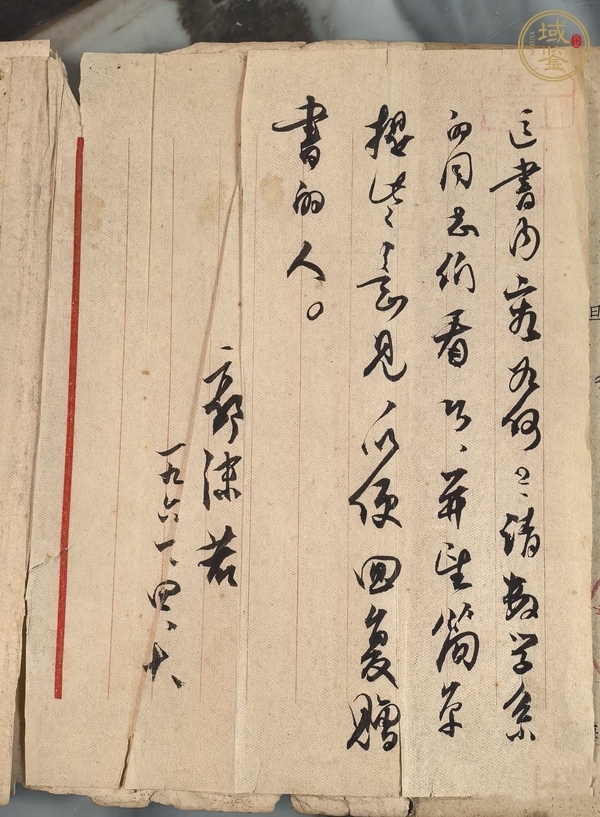 这书内容如何?请数学系
的同志们看并望简单
提些意見、以便回复贈
書的人。
郭沫若
一九六一、四、十六
域鑒